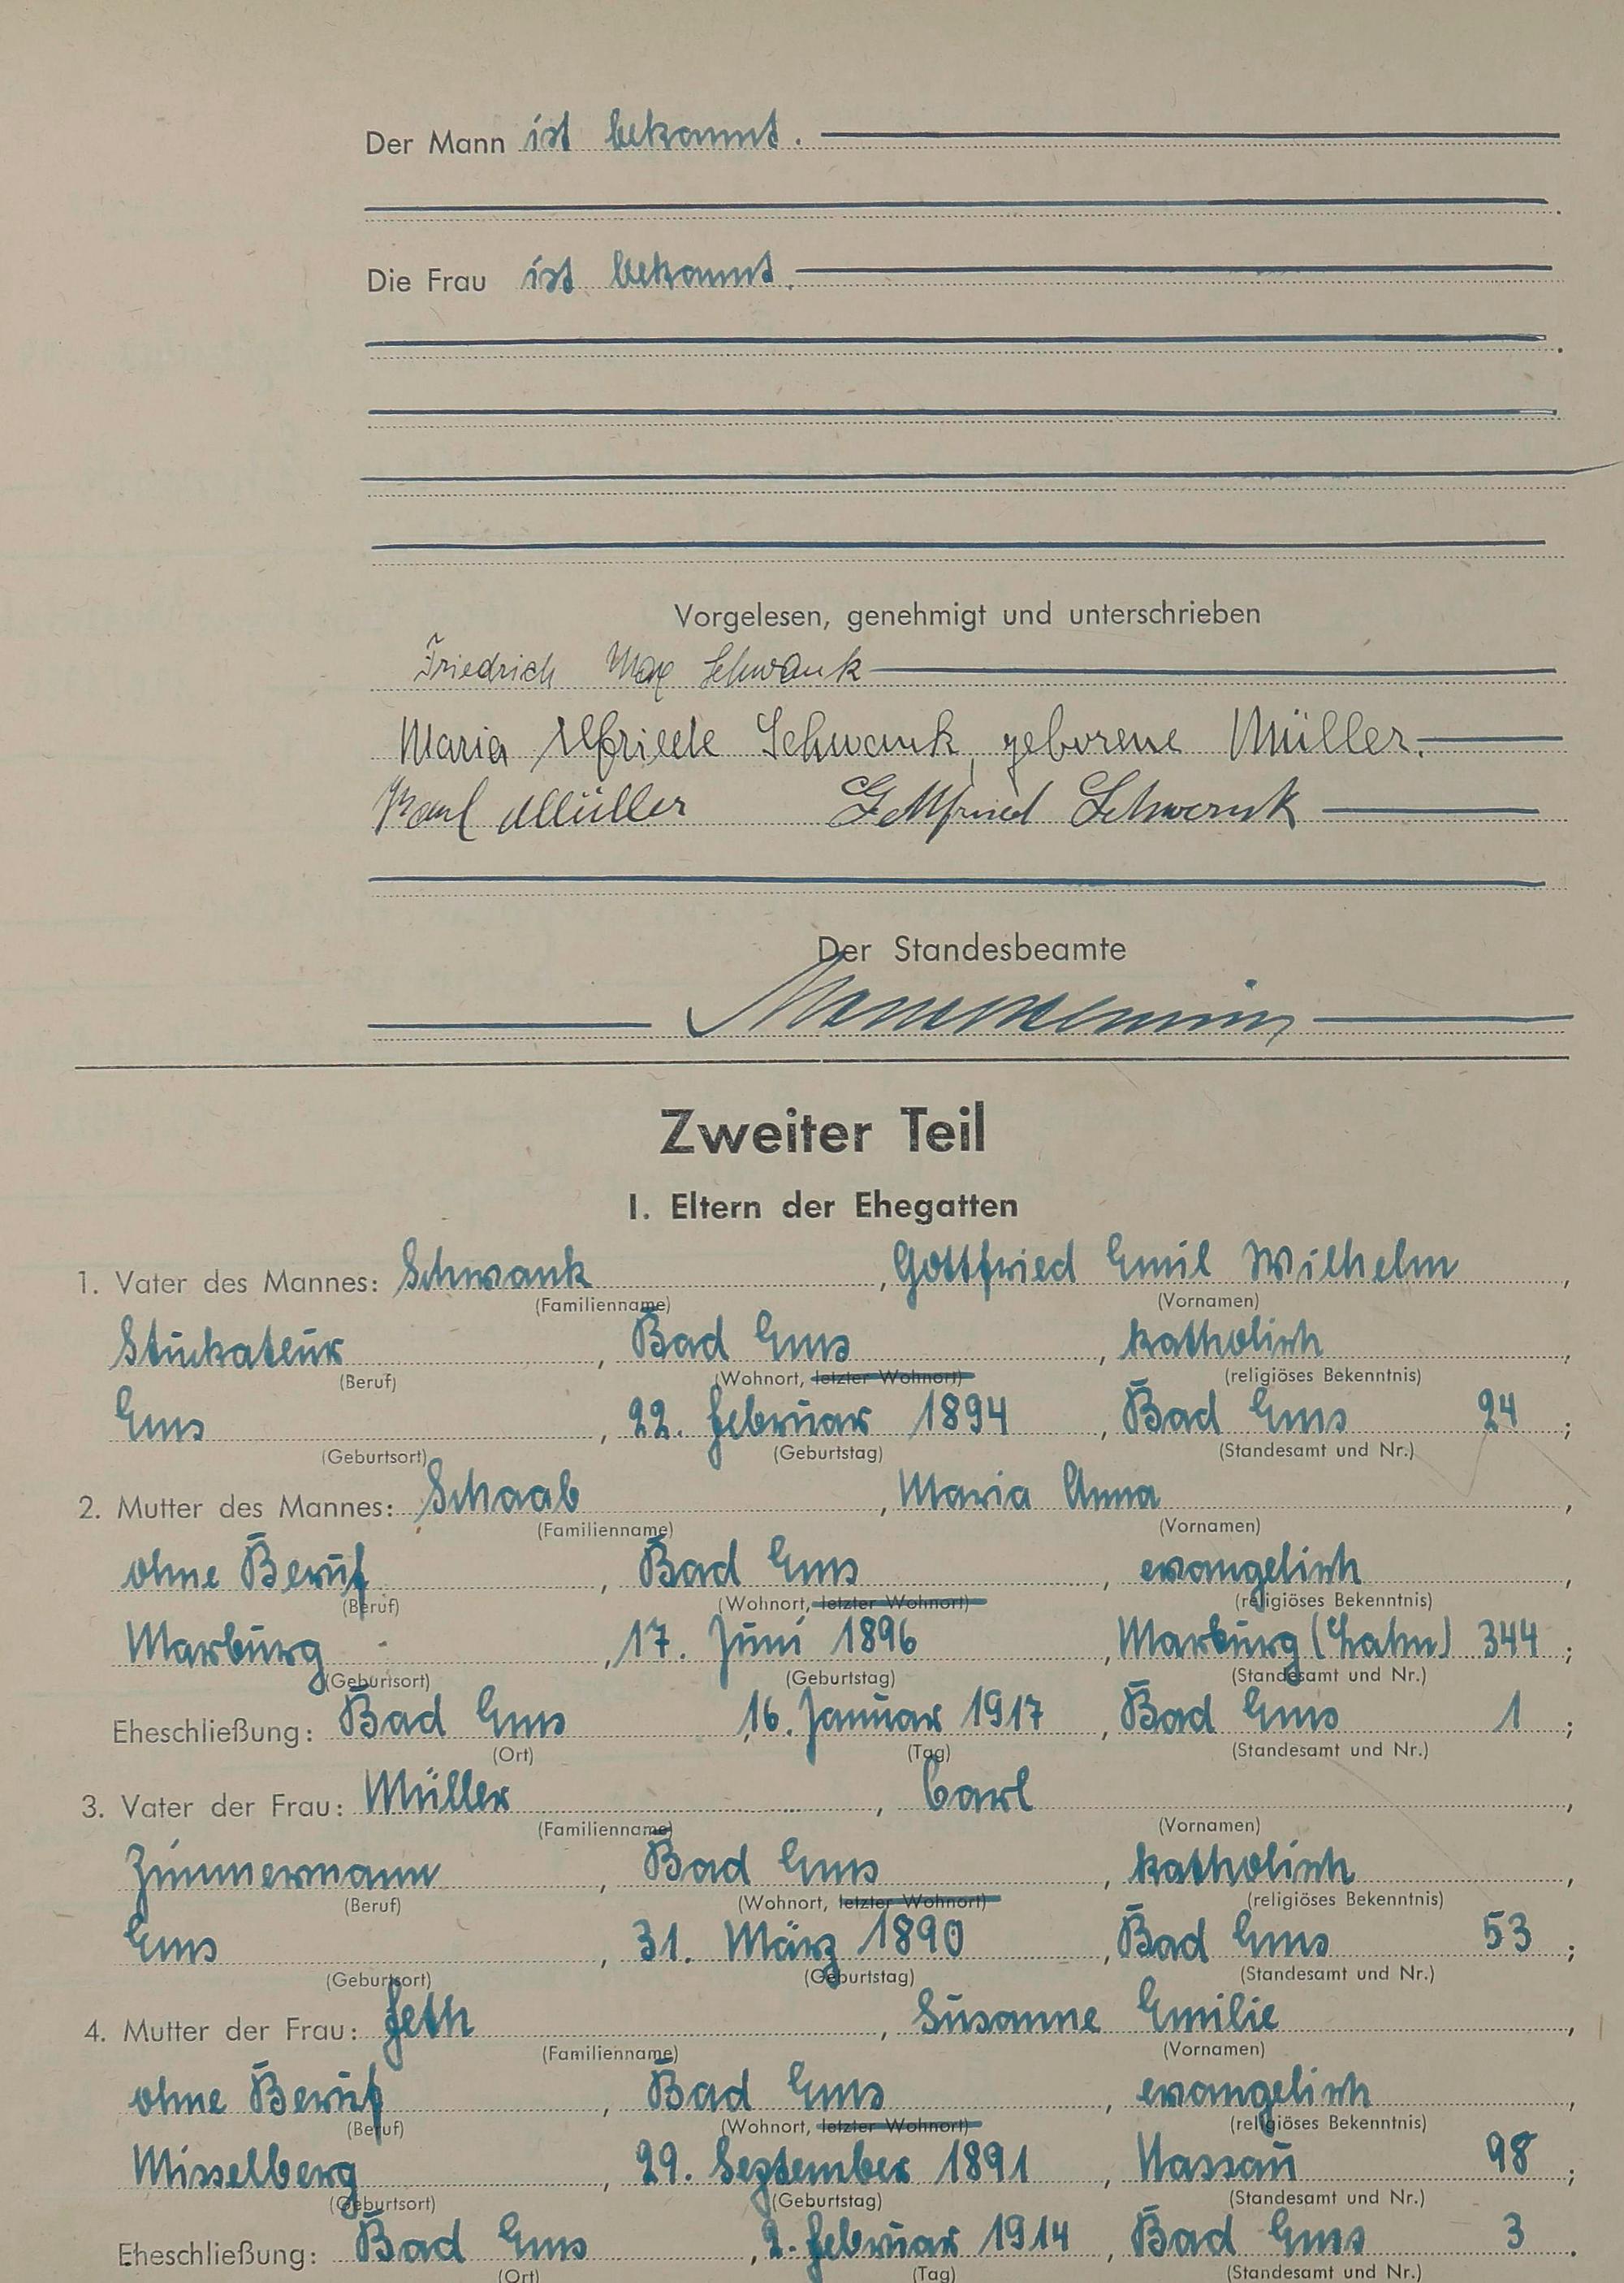 Der Mann ist bekannt.
Die Frau ist bekannt.
Vorgelesen, genehmigt und unterschrieben
Friedrich Max Schwank
Maria Elfriede Schwank, geborene Müller.
Karl Müller Gottfried Schwank
Der Standesbeamte
Zweiter Teil
I. Eltern der Ehegatten
1. Vater des Mannes: Schwank, Gottfried Emil Wilhelm,
(Familienname) (Vornamen)
Stukateur, Bad Ems, katholisch,
(Beruf) (Wohnort, letzter Wohnort) (religiöses Bekenntnis)
Ems, 22. Februar 1894, Bad Ems 24;
(Geburtsort) (Geburtstag) (Standesamt und Nr.)
2. Mutter des Mannes: Schaab, Maria Anna,
(Familienname) (Vornamen)
ohne Beruf, Bad Ems, evangelisch,
(Beruf) (Wohnort, letzter Wohnort) (religiöses Bekenntnis)
Marburg, 17. Juni 1896, Marburg (Lahn) 344;
(Geburtsort) (Geburtstag) (Standesamt und Nr.)
Eheschließung: Bad Ems, 16. Januar 1917, Bad Ems 1;
(Ort) (Tag) (Standesamt und Nr.)
3. Vater der Frau: Müller, Carl,
(Familienname) (Vornamen)
Zimmermann, Bad Ems, katholisch,
(Beruf) (Wohnort, letzter Wohnort) (religiöses Bekenntnis)
Ems, 31. März 1890, Bad Ems 53;
(Geburtsort) (Geburtstag) (Standesamt und Nr.)
4. Mutter der Frau: Feth, Susanne Emilie,
(Familienname) (Vornamen)
ohne Beruf, Bad Ems, evangelisch,
(Beruf) (Wohnort, letzter Wohnort) (religiöses Bekenntnis)
Misselberg, 29. September 1891, Nassau 98;
(Geburtsort) (Geburtstag) (Standesamt und Nr.)
Eheschließung: Bad Ems, 2. Februar 1914, Bad Ems 3.
(Ort) (Tag) (Standesamt und Nr.)